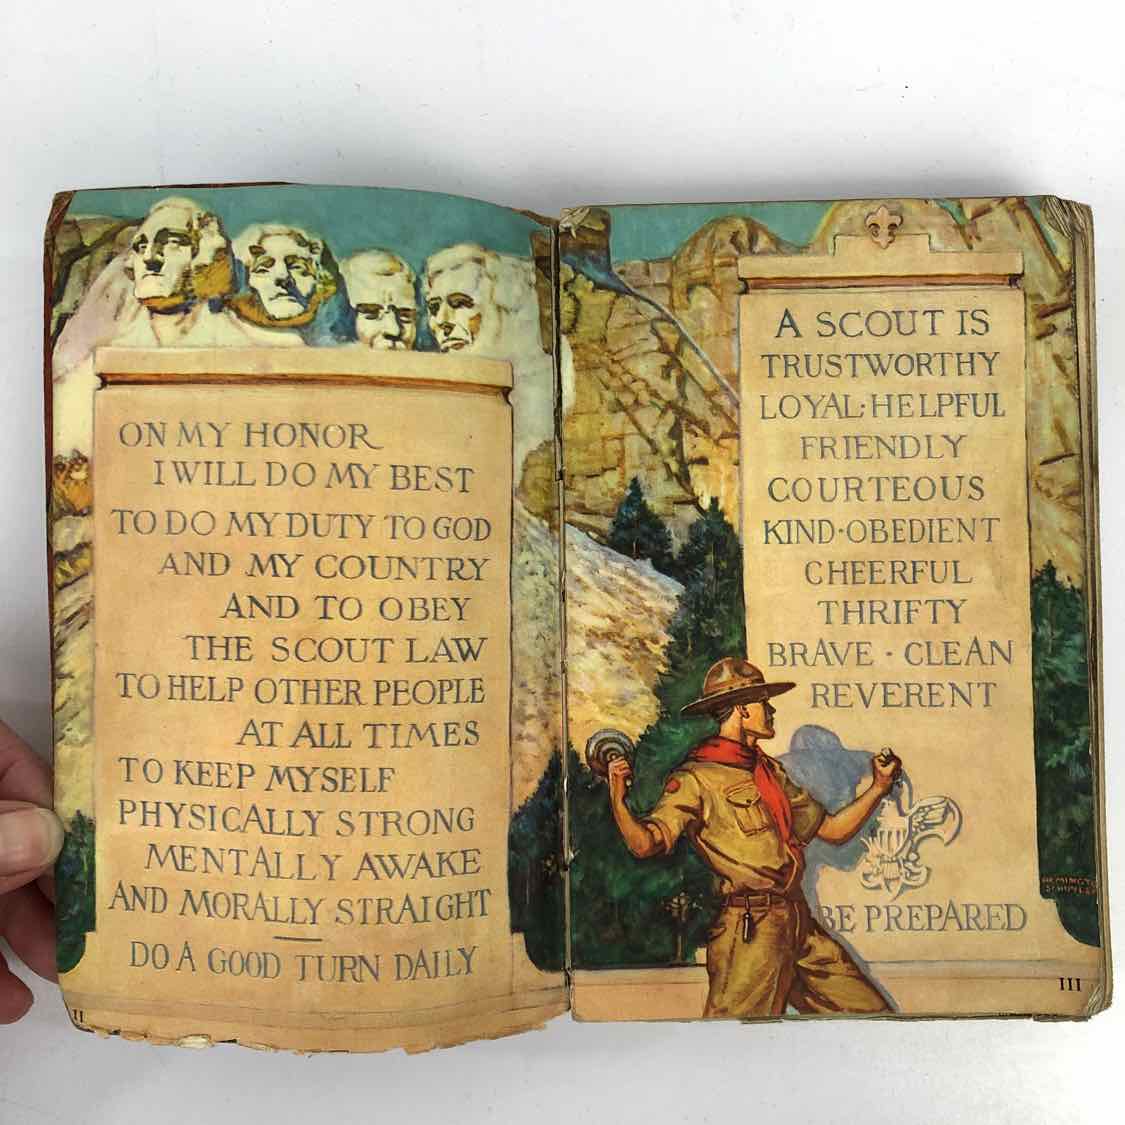 ON MY HONOR
I WILL DO MY BEST
TO DO MY DUTY TO GOD
AND MY COUNTRY
AND TO OBEY
THE SCOUT LAW
TO HELP OTHER PEOPLE
AT ALL TIMES
TO KEEP MYSELF
PHYSICALLY STRONG
MENTALLY AWAKE
AND MORALLY STRAIGHT
DO A GOOD TURN DAILY
II
A SCOUT IS
TRUSTWORTHY
LOYAL·HELPFUL
FRIENDLY
COURTEOUS
KIND·OBEDIENT
CHEERFUL
THRIFTY
BRAVE · CLEAN
REVERENT
BE PREPARED
III